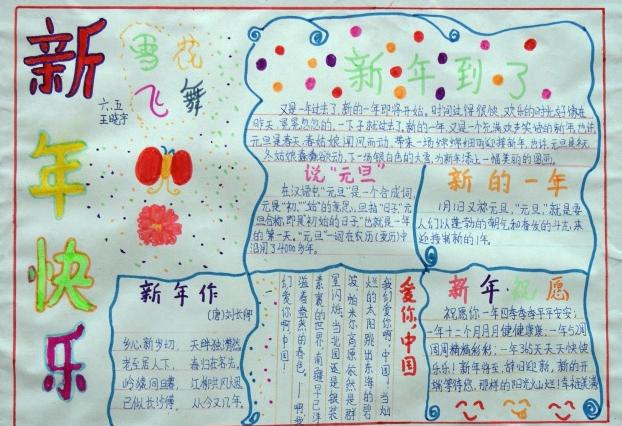 新年快乐
雪花
飞舞
六.五
王晓宇
新年到了
又是一年过去了,新的一年即将开始。时间过得很快,欢乐的时光好像在
昨天,匆匆忽忽的,一下子就过去了。新的一年,又是一个充满欢声笑语的新年,也许,
元旦是春天,春姑娘闻风而动,带来一场绵绵细雨迎接新年,也许,元旦是冬天,
冬姑娘蠢蠢欲动,下一场银白色的大雪,为新年添上一幅美丽的图画。
说“元旦”
在汉语中“元旦”是一个合成词,
元是“初”“始”的意思,旦指“日子”,元
旦合称,即是“初始的日子”也就是一年
的第一天。“元旦”一词在农历(夏历)中
沿用了4000多年。
新的一年
1月1日又称元旦,“元旦”就是要
人们以蓬勃的朝气和奋发的斗志,来
迎接崭新的1年。
新年作
(唐)刘长卿
乡心新岁切, 天畔独潸然。
老至居人下, 春归在客先。
岭猿同旦暮, 江柳共风烟。
已似长沙傅, 从今又几年。
爱你,中国
我们爱你啊,中国!当灿
烂的太阳跳出东海的碧
波,帕米尔高原依然是群
星闪烁;当北国还是银装
素裹的世界,南疆早已洋
溢着盎然的春色。——啊,我
们爱你啊,中国!
新年祝愿
祝愿你一年四季季季平平安安;
一年十二个月月月健健康康;一年52周
周周精精彩彩;一年365天天天快快
乐乐!新年将至,辞旧迎新,新的开
端等待您,那样的阳光火山烂!幸福美满